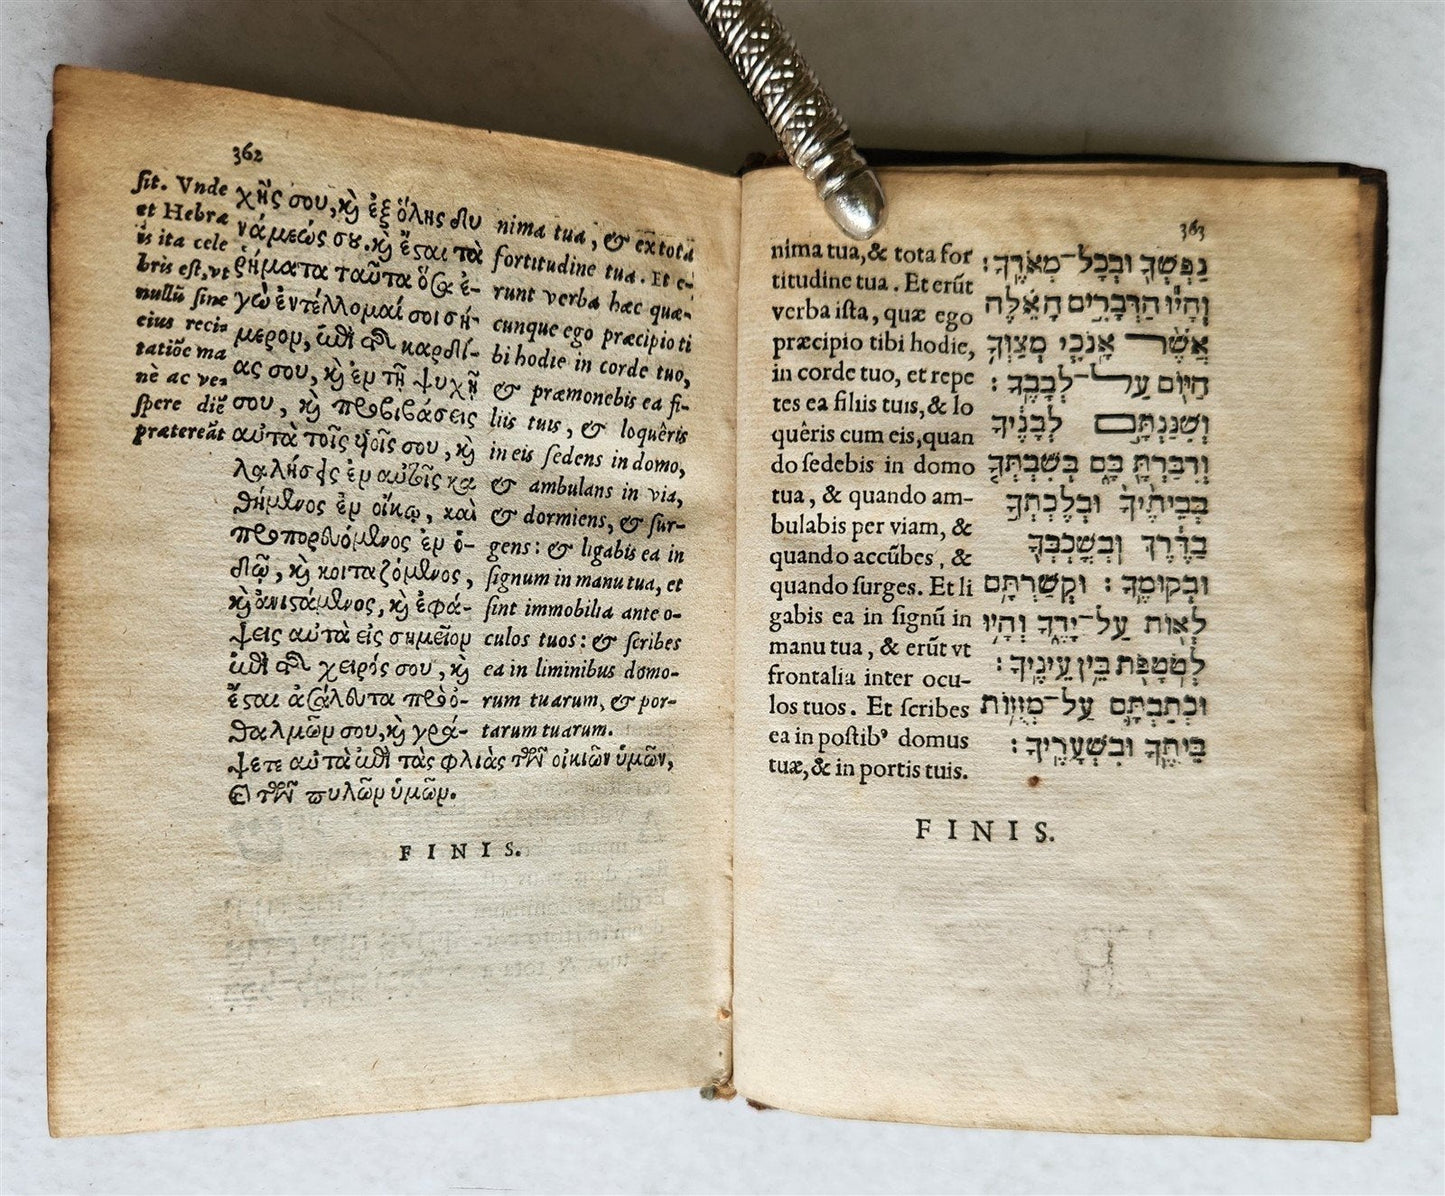 362
sit. Vnde
et Hebræ
is ita cele
bris est, vt
nullũ sine
eius reci-
tatiõe ma
nè ac ve-
spere diẽ
prætereãt
χῆς σου, καὶ ἐξ ὅλης δυ
νάμεώς σου. καὶ ἔσαι τὰ
ῥήματα ταῦτα ὅσα ἐ-
γὼ ἐντέλλομαί σοι σή-
μερον, ἐπὶ τῆ καρδί-
ας σου, καὶ ἐν τῇ ψυχῇ
σου, καὶ προβιβάσεις
αὐτὰ τοῖς υἱοῖς σου, καὶ
λαλήσεις ἐν αὐτοῖς κα
θήμενος ἐν οἴκῳ, καὶ
προπορευόμενος ἐν ὁ-
δῷ, καὶ κοιταζόμενος,
καὶ ἀνιστάμενος, καὶ ἐφά-
ψεις αὐτὰ εἰς σημεῖον
ἐπὶ τῆ χειρός σου, καὶ
ἔσαι ἀσάλευτα πρὸ ὀ-
θαλμῶν σου, καὶ γρά-
ψετε αὐτὰ ἐπὶ τὰς φλιὰς τῶν οἰκιῶν ὑμῶν,
καὶ τῶν πυλῶν ὑμῶν.
nima tua, & ex tota
fortitudine tua. Et e-
runt verba hæc quæ-
cunque ego præcipio ti
bi hodie in corde tuo,
& præmonebis ea fi-
liis tuis, & loquêris
in eis sedens in domo,
& ambulans in via,
& dormiens, & sur-
gens: & ligabis ea in
signum in manu tua, et
sint immobilia ante o-
culos tuos: & scribes
ea in liminibus domo-
rum tuarum, & por-
tarum tuarum.
FINIS.
363
nima tua, & tota for
titudine tua. Et erũt
verba ista, quæ ego
præcipio tibi hodie,
in corde tuo, et repe
tes ea filiis tuis, & lo
quêris cum eis, quan
do sedebis in domo
tua, & quando am-
bulabis per viam, &
quando accũbes, &
quando surges. Et li
gabis ea in signũ in
manu tua, & erũt vt
frontalia inter ocu-
los tuos. Et scribes
ea in postib⁹ domus
tuæ, & in portis tuis.
נַפְשְׁךָ וּבְכָל־מְאֹדֶךָ:
וְהָיוּ הַדְּבָרִים הָאֵלֶּה
אֲשֶׁר אָנֹכִי מְצַוְּךָ
הַיּוֹם עַל־לְבָבֶךָ:
וְשִׁנַּנְתָּם לְבָנֶיךָ
וְדִבַּרְתָּ בָּם בְּשִׁבְתְּךָ
בְּבֵיתֶיךָ וּבְלֶכְתְּךָ
בַדֶּרֶךְ וְּבְשָׁכְבְּךָ
וּבְקוּמֶךָ: וּקְשַׁרְתָּם
לְאוֹת עַל־יָדֶךָ וְהָיוּ
לְטֹטָפֹת בֵּין עֵינֶיךָ:
וּכְתַבְתָּם עַל־מְזוּזוֹת
בֵּיתֶךָ וּבִשְׁעָרֶיךָ:
FINIS.